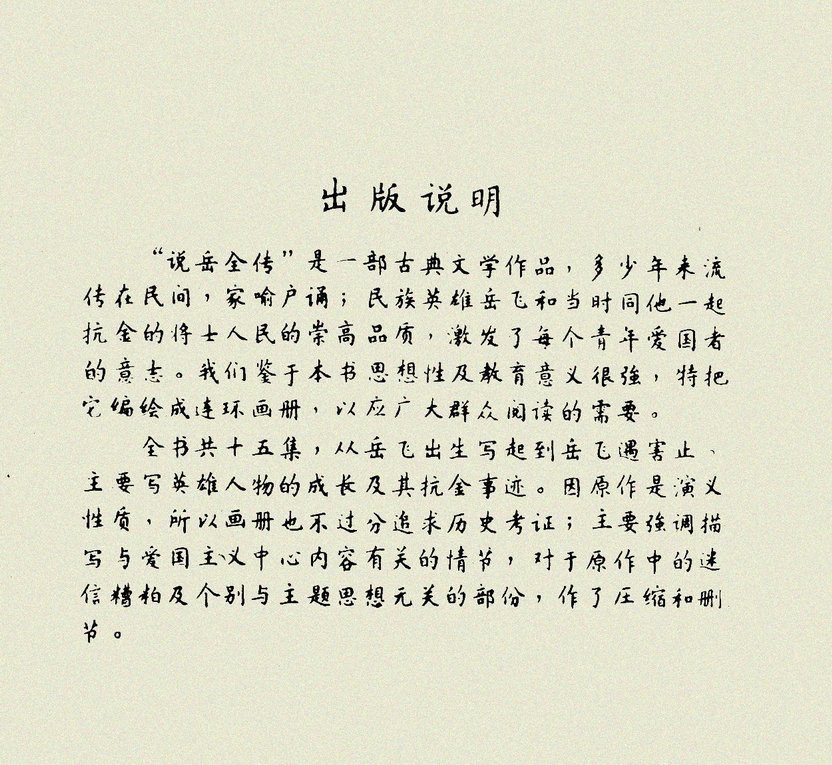 出版说明
“说岳全传”是一部古典文学作品，多少年来流
传在民间，家喻户诵；民族英雄岳飞和当时同他一起
抗金的将士人民的崇高品质，激发了每个青年爱国者
的意志。我们鉴于本书思想性及教育意义很强，特把
它编绘成连环画册，以应广大群众阅读的需要。
全书共十五集，从岳飞出生写起到岳飞遇害止、
主要写英雄人物的成长及其抗金事迹。因原作是演义
性质，所以画册也不过分追求历史考证；主要强调描
写与爱国主义中心内容有关的情节，对于原作中的迷
信糟粕及个别与主题思想无关的部份，作了压缩和删
节。